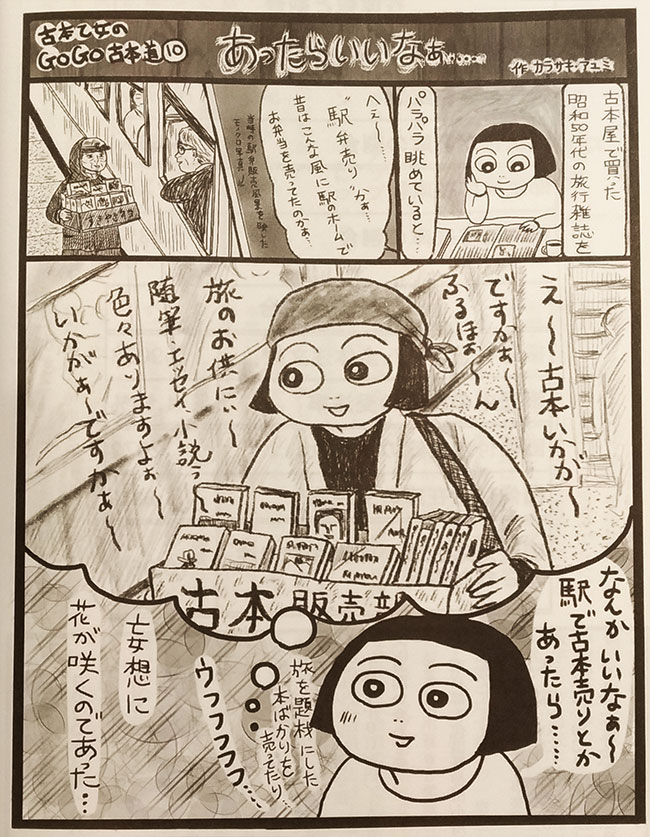 古本乙女の
GOGO古本道⑩
あったらいいなぁ……
作・カラサキ・アユミ
古本屋で買った
昭和50年代の旅行雑誌を
パラパラ眺めていると…
へぇ〜…
"駅弁売り"かぁ…
昔はこんな風に駅のホームで
お弁当を売ってたのかぁ…
当時の駅弁販売風景を映した
モノクロ写真
え〜〜古本いかが〜
ですかぁ〜〜
ふるほぉ〜ん
旅のお供にぃ〜
随筆・エッセイ、小説ぅ
色々ありますよぉ〜
いかがぁ〜ですかぁ〜
古本販売
なんかいいなぁ〜
駅で古本売りとか
あったら……
旅を題材にした
本ばかりを
売ってたり…
ウフフフフフ…
妄想に
花が咲くのであった…